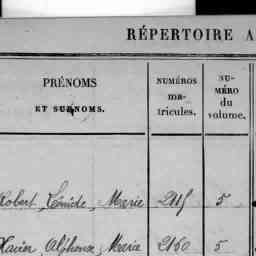 RÉPERTOIRE A
PRÉNOMS
ET SURNOMS.
NUMÉROS
ma-
tricules.
NU-
MÉRO
du
volume.
Robert, Marie 2115 5
Xavier Alphonse Marie 2160 5